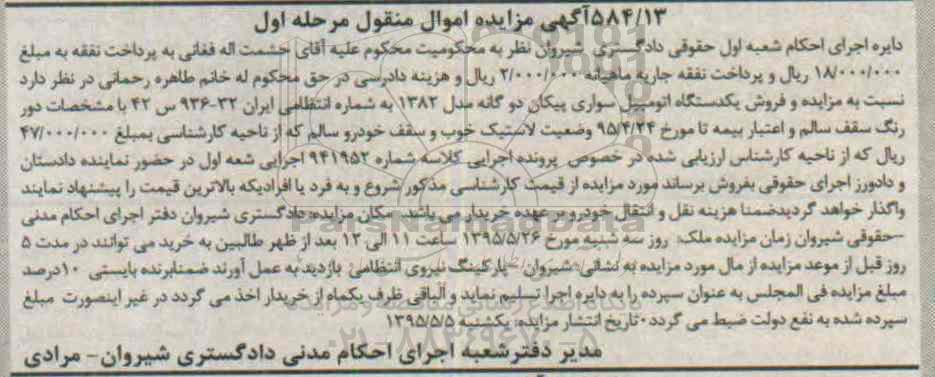 ۵۸۴/۱۳آگهی مزایده اموال منقول مرحله اول
دایره اجرای احکام شعبه اول حقوقی دادگستری شیروان نظر به محکومیت محکوم علیه آقای حشمت اله فغانی به پرداخت نفقه به مبلغ
۱۸/۰۰۰/۰۰۰ ریال و پرداخت نفقه جاریه ماهیانه ۲/۰۰۰/۰۰۰ ریال و هزینه دادرسی در حق محکوم له خانم طاهره رحمانی در نظر دارد
نسبت به مزایده و فروش یکدستگاه اتومبیل سواری پیکان دو گانه مدل ۱۳۸۲ به شماره انتظامی ایران ۳۲-۹۳۶ س ۴۲ با مشخصات دور
رنگ سقف سالم و اعتبار بیمه تا مورخ ۹۵/۴/۲۴ وضعیت لاستیک خوب و سقف خودرو سالم که از ناحیه کارشناسی بمبلغ ۴۷/۰۰۰/۰۰۰
ریال که از ناحیه کارشناس ارزیابی شده در خصوص پرونده اجرایی کلاسه شماره ۹۴۱۹۵۲ اجرایی شعه اول در حضور نماینده دادستان
و دادورز اجرای حقوقی بفروش برساند مورد مزایده از قیمت کارشناسی مذکور شروع و به فرد یا افرادیکه بالاترین قیمت را پیشنهاد نمایند
واگذار خواهد گردیدضمنا هزینه نقل و انتقال خودرو بر عهده خریدار می باشد. مکان مزایده: دادگستری شیروان دفتر اجرای احکام مدنی
-حقوقی شیروان زمان مزایده ملک: روز سه شنبه مورخ ۱۳۹۵/۵/۲۶ ساعت ۱۱ الی ۱۲ بعد از ظهر طالبین به خرید می توانند در مدت ۵
روز قبل از موعد مزایده از مال مورد مزایده به نشانی: شیروان - پارکینگ نیروی انتظامی بازدید به عمل آورند ضمنابرنده بایستی ۱۰درصد
مبلغ مزایده فی المجلس به عنوان سپرده را به دایره اجرا تسلیم نماید و الباقی ظرف یکماه از خریدار اخذ می گردد در غیر اینصورت مبلغ
سپرده شده به نفع دولت ضبط می گردد۰تاریخ انتشار مزایده: یکشنبه ۱۳۹۵/۵/۵
مدیر دفترشعبه اجرای احکام مدنی دادگستری شیروان- مرادی
ParsNamadData
۰۲۱-۸۸۳۴۹۶۷۰-۵